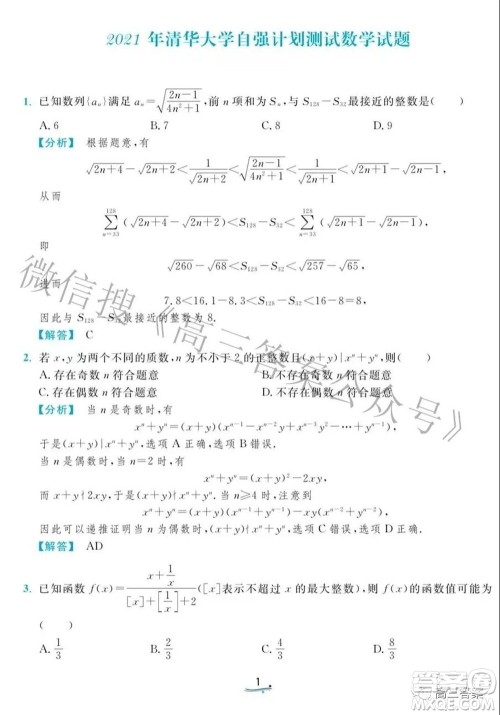 2021 年清华大学自强计划测试数学试题
1. 已知数列{aₙ}满足 aₙ=√((2n−1)/(4n²+1)),前 n 项和为 Sₙ,与 S₁₂₈−S₃₂最接近的整数是( )
A. 6 B. 7 C. 8 D. 9
【分析】 根据题意,有
√(2n+4)−√(2n+2)<1/√(2n+2)<√((2n−1)/(4n²+1))
从而
∑(n=33→128)(√(2n+4)−√(2n+2))<S₁₂₈−S₃₂
即
√260−√68<S₁₂₈−S₃₂<√257−√65,
7.8<16.1−8.3<S₁₂₈−S₃₂<
因此与 S₁₂₈−S₃₂最接近的整数为 8.
【解答】 C
2. 若 x,y 为两个不同的质数,n 为不小于 2 的正整数且(x+y)|xⁿ+yⁿ,则( )
A. 存在奇数 n 符合题意 B. 不存在奇数 n 符合题意
C. 存在偶数 n 符合题意 D. 不存在偶数 n 符合题意
【分析】 当 n 是奇数时,有
xⁿ+yⁿ=(x+y)(xⁿ⁻¹−xⁿ⁻²y+xⁿ⁻³y²−…+yⁿ⁻¹)
于是(x+y)|xⁿ+yⁿ,选项 A 正确,选项 B 错误.
当 n 是偶数时,当 n=2 时,有
xⁿ+yⁿ=(x+y)²−2xy,
而 x+y∤2xy,于是(x+y)∤xⁿ+yⁿ. 当 n≥4 时,有
xⁿ+yⁿ=(x+y)(xⁿ⁻¹+yⁿ⁻¹)−xy(xⁿ⁻²+yⁿ⁻²)
因此可以递推证明当 n 为偶数时,(x+y)∤xⁿ+yⁿ,选项 C 错误,选项 D 正确.
【解答】 AD
3. 已知函数 f(x)=(x+1/x)/([x]+[1/x]+2)([x]表示不超过 x 的最大整数),则 f(x)的函数值可能为
( )
A. 1/3 B. 2/3 C. 4/3 D. 8/3
1
微信搜《高三答案公众号》
高三答案
MXQE.COM